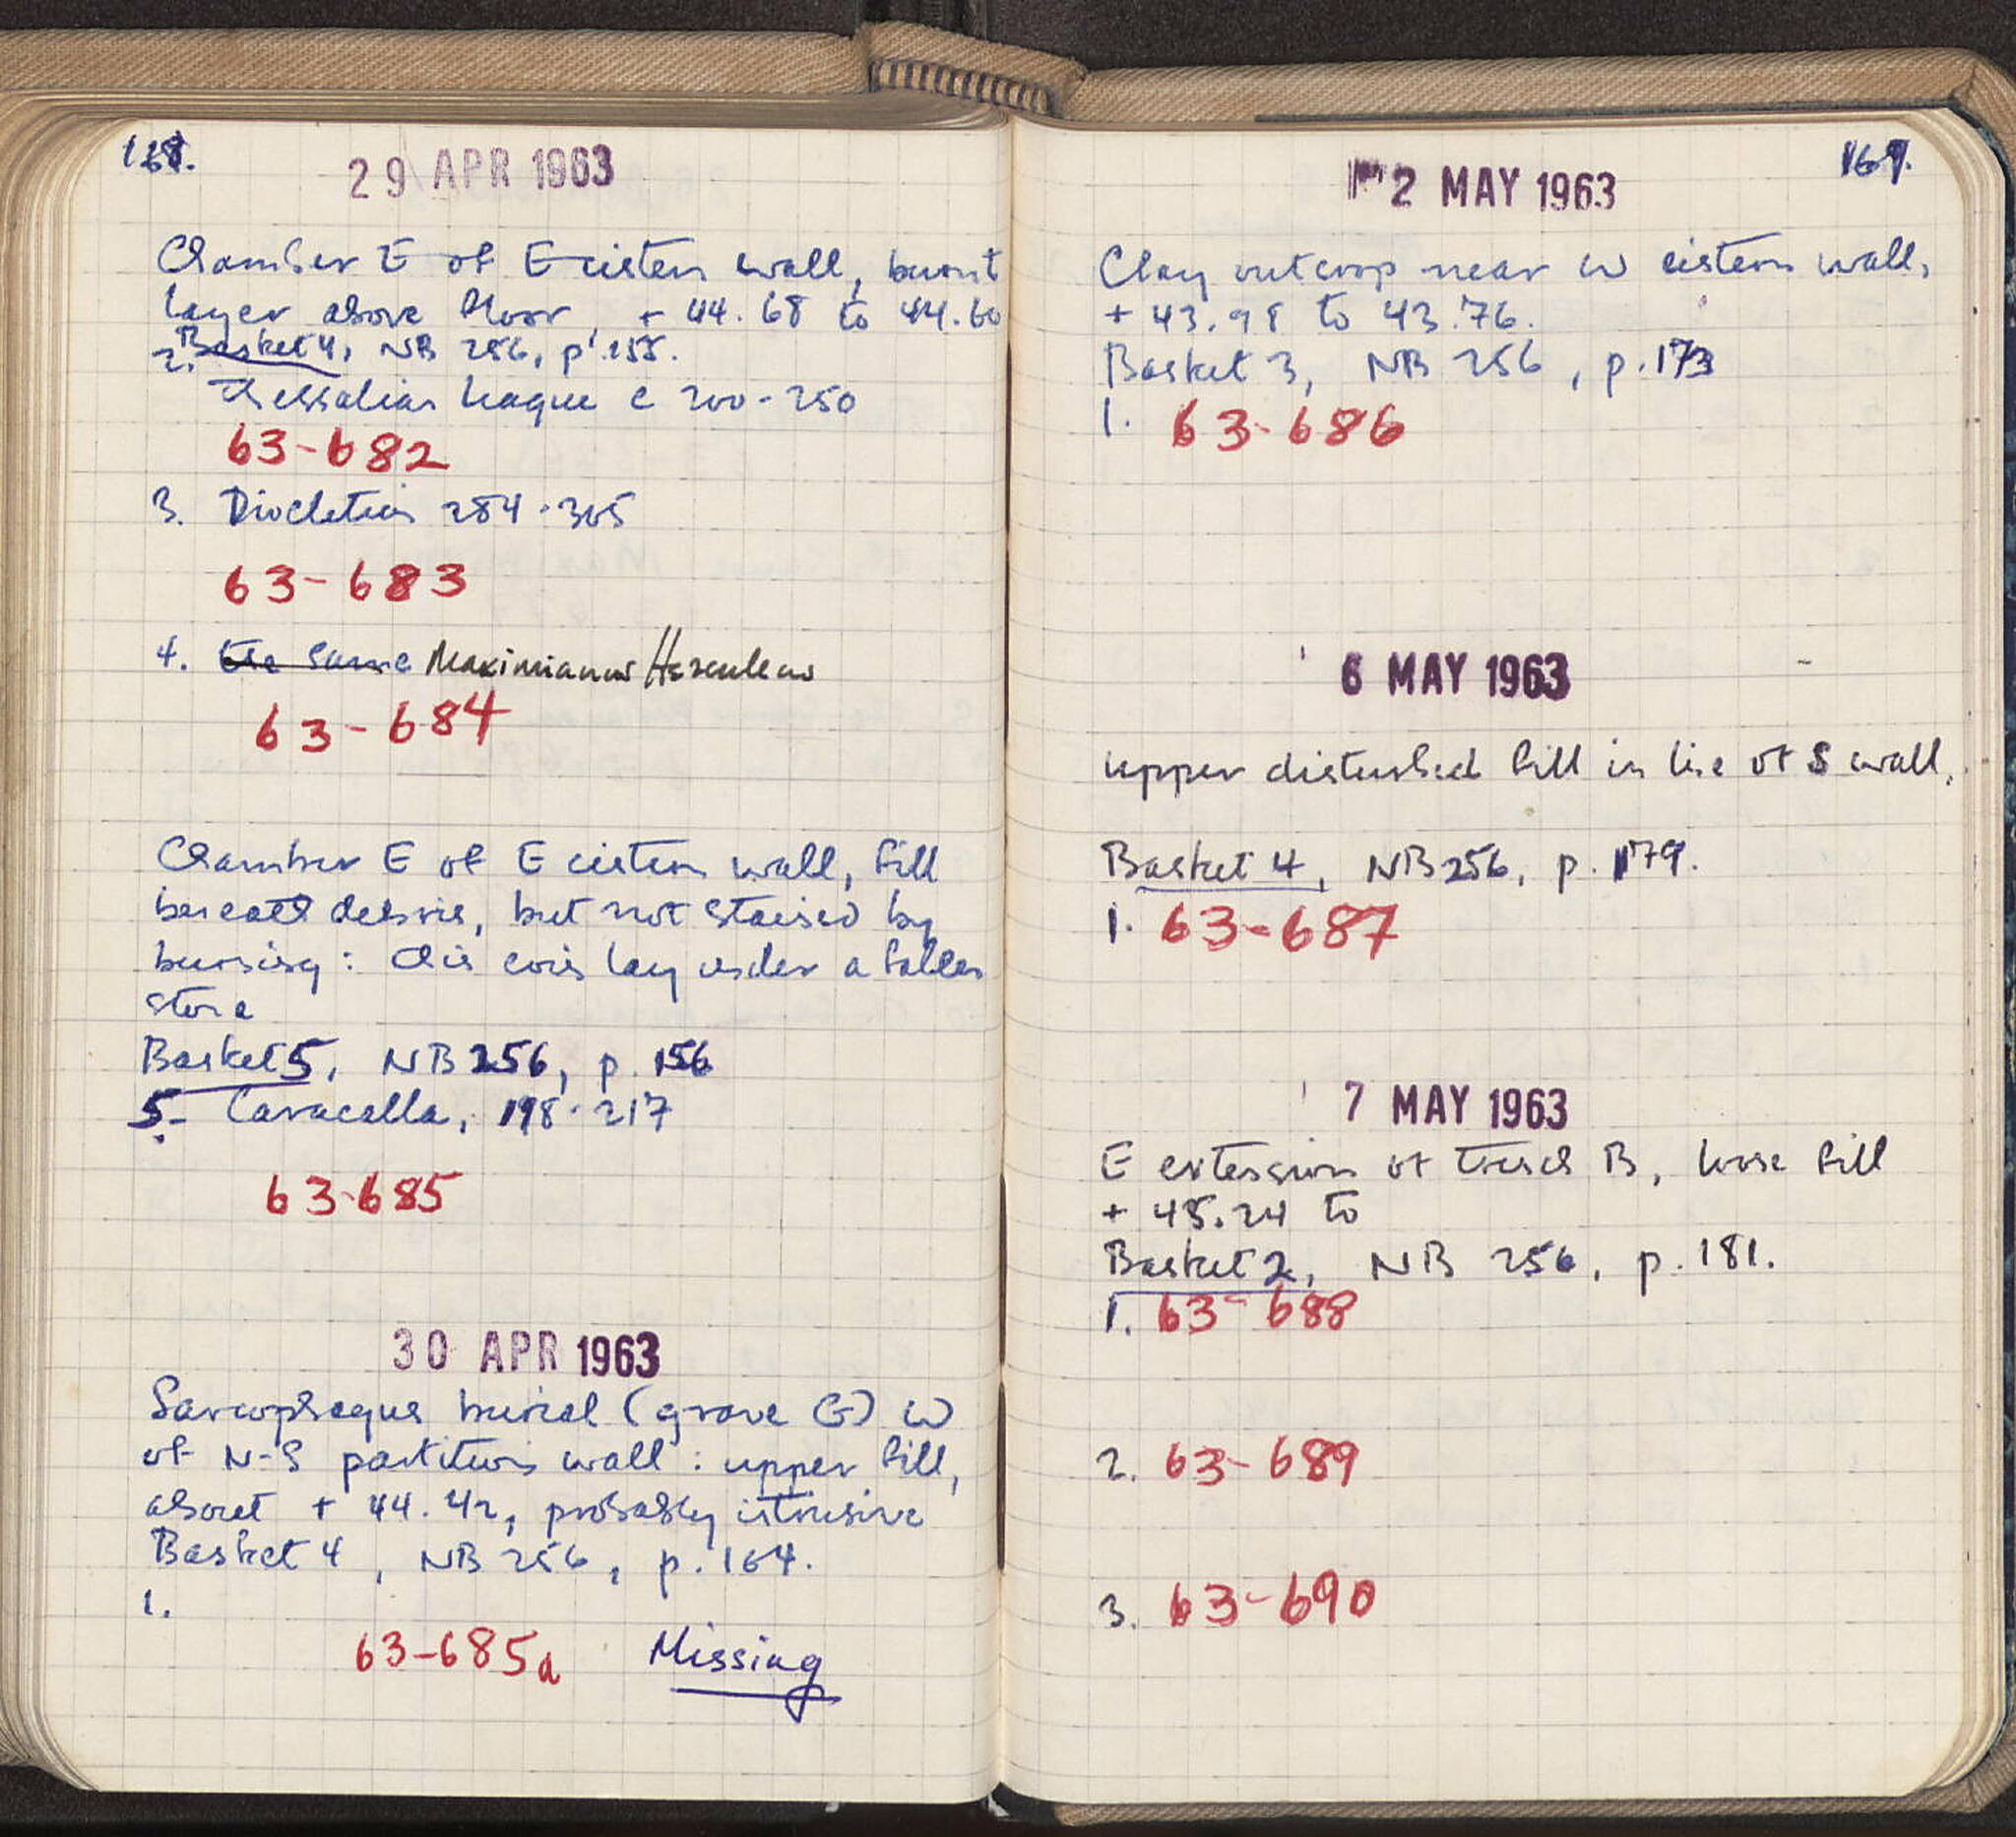 168.
29 APR 1963
Chamber E of E cistern wall, burnt
layer above floor, + 44.68 to 44.60
Basket 4, NB 256, p. 155.
2. Thessalian League c 200-250
63-682
3. Diocletian 284-305
63-683
4. the same Maximianus Herculeus
63-684
Chamber E of E cistern wall, fill
beneath debris, but not stained by
burning: this coin lay under a fallen
stone
Basket 5, NB 256, p. 156
5- Caracalla, 198-217
63-685
30 APR 1963
Sarcophagus burial (grave G) W
of N-S partition wall: upper fill,
about + 44.42, probably intrusive
Basket 4, NB 256, p. 164.
1.
63-685a Missing
169.
2 MAY 1963
Clay outcrop near W cistern wall,
+ 43.98 to 43.76.
Basket 3, NB 256, p. 173
1. 63-686
6 MAY 1963
upper disturbed fill in line of S wall,
Basket 4, NB 256, p. 179.
1. 63-687
7 MAY 1963
E extension of trench B, loose fill
+ 45.24 to
Basket 2, NB 256, p. 181.
1. 63-688
2. 63-689
3. 63-690